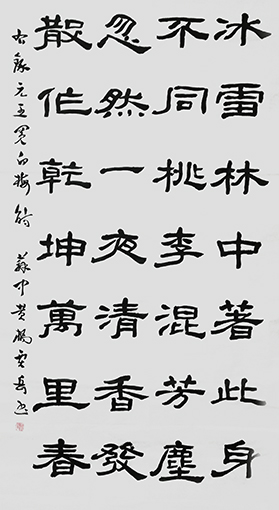 冰雪林中著此身
不同桃李混芳塵
忽然一夜清香發
散作乾坤萬里春
右錄元王冕白梅詩